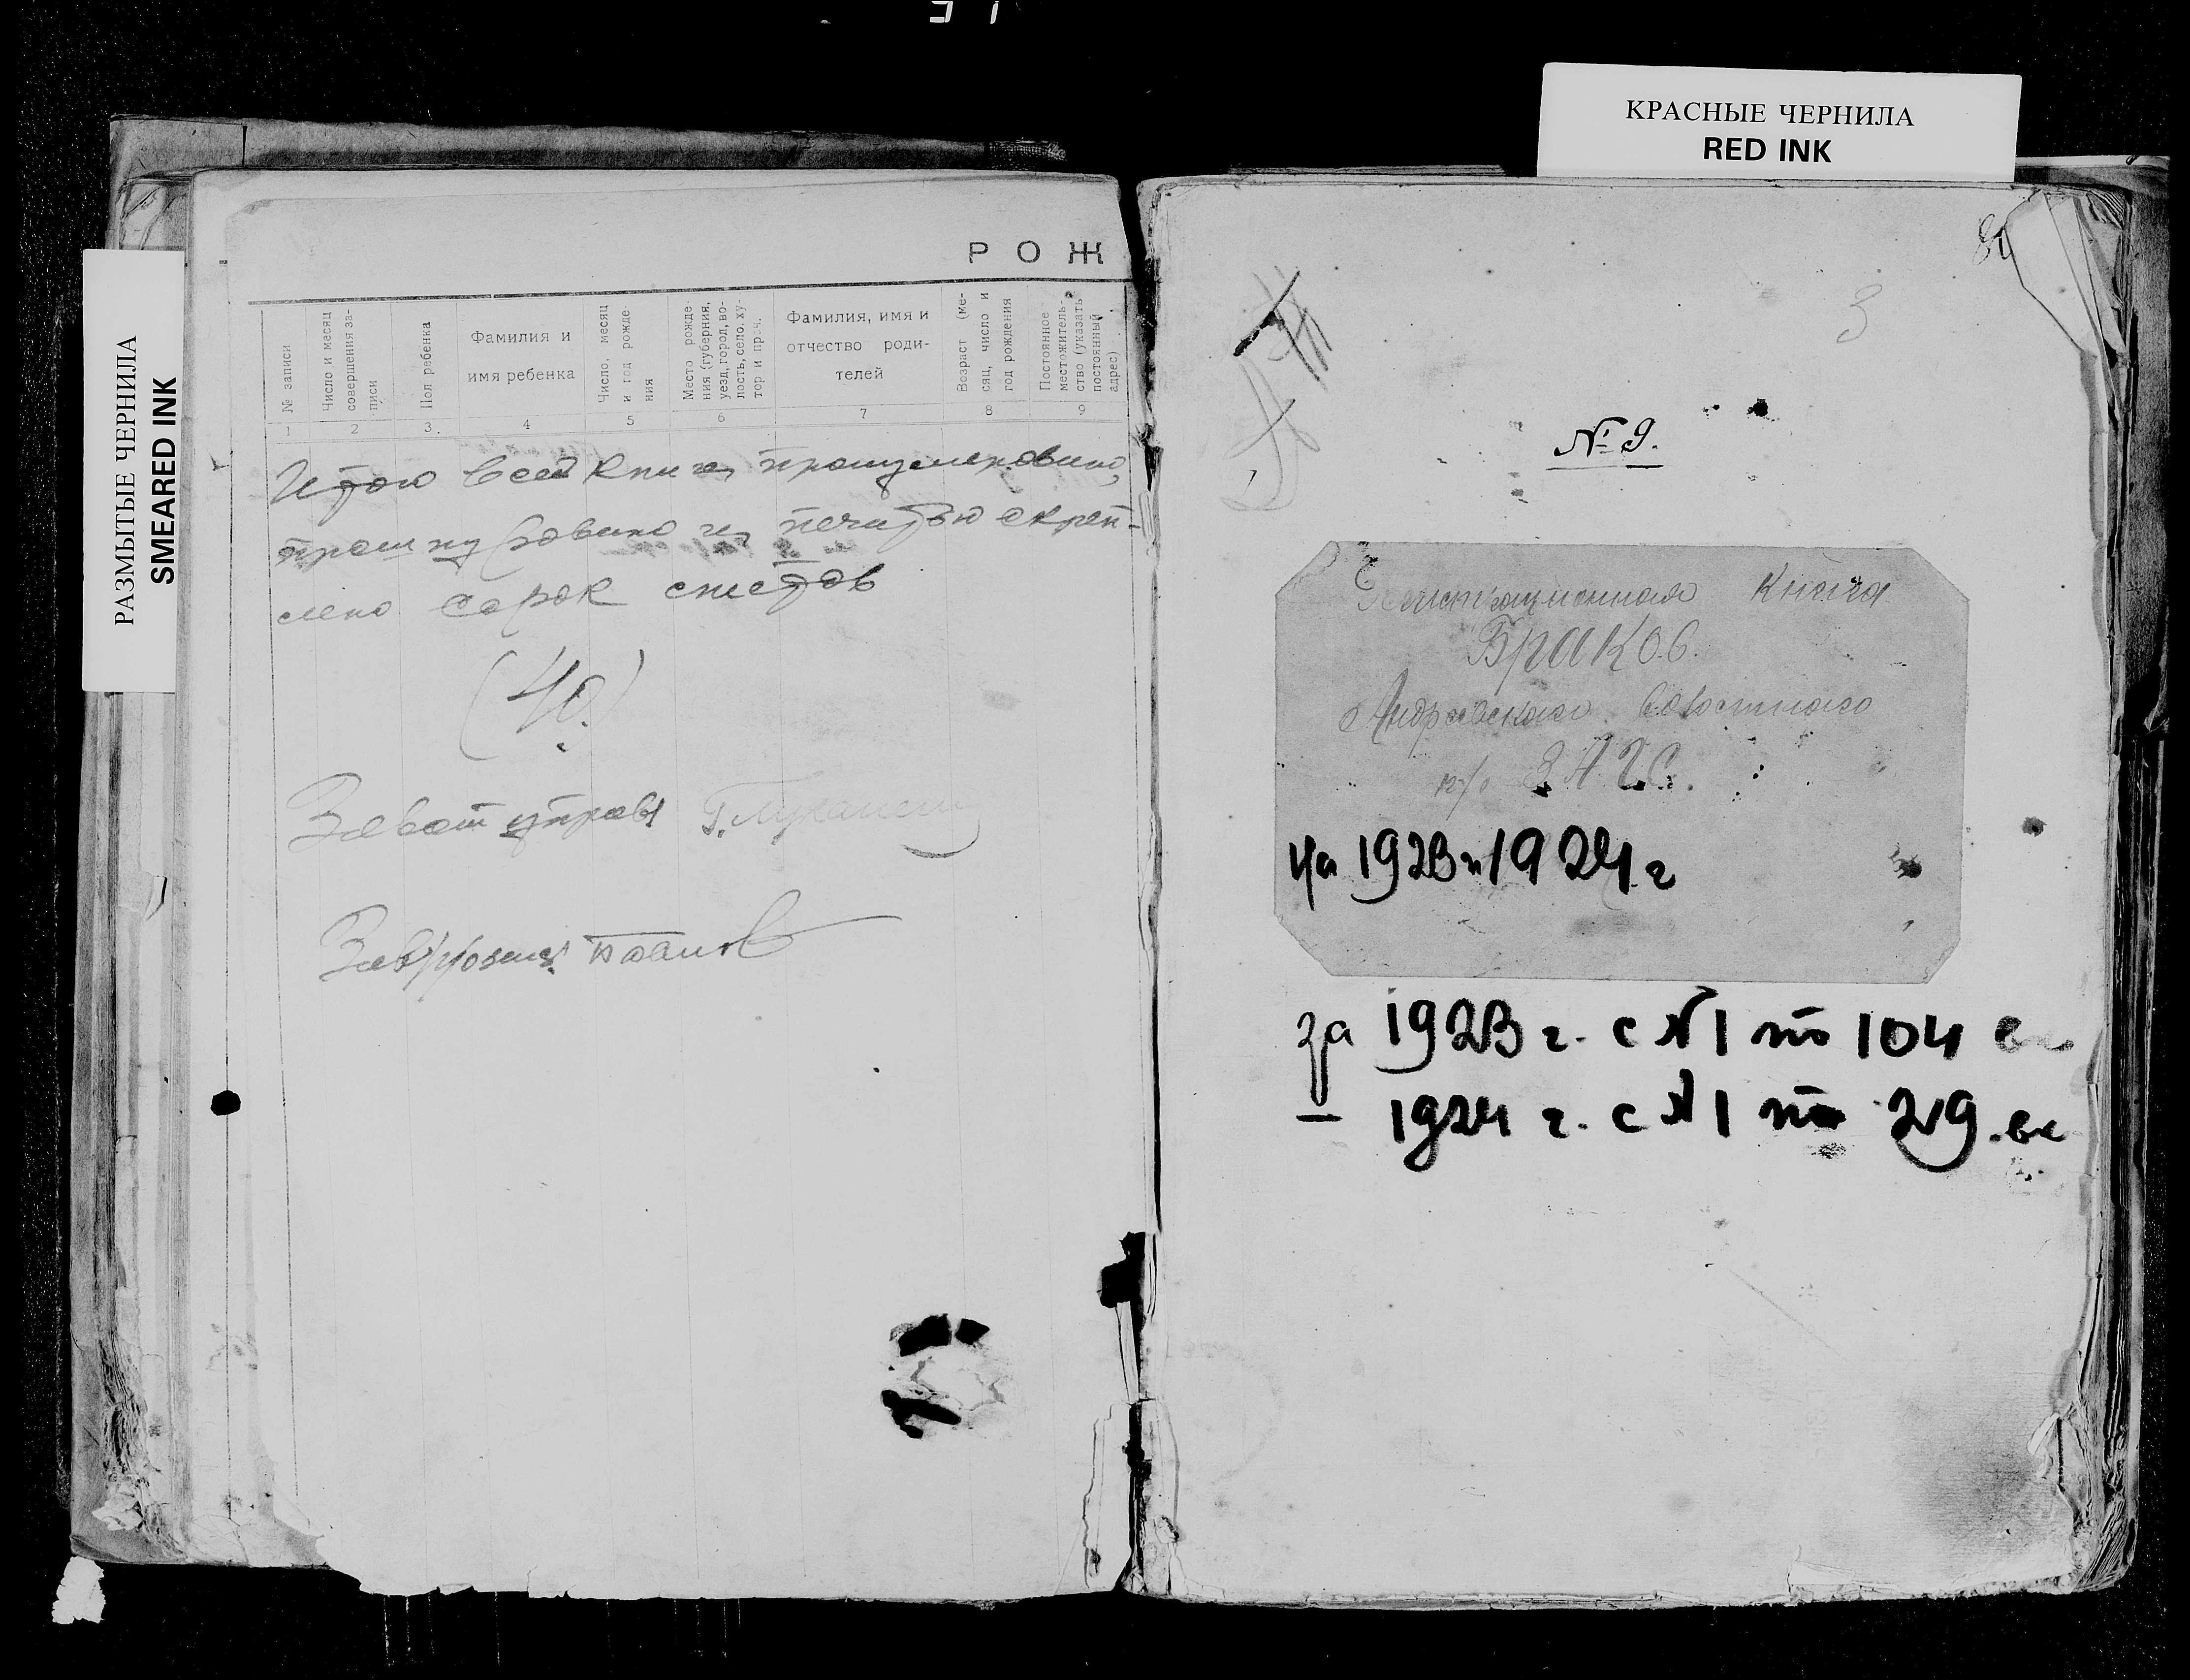 РАЗМЫТЫЕ ЧЕРНИЛА
SMEARED INK
Р О Ж
№ записи
Число и месяц совершения за-
писи
Пол ребенка
Фамилия и
имя ребенка
Число, месяц
и год рожде-
ния
Место рожде-
ния (губерния,
уезд, город, во-
лость, село, ху-
тор и проч.
Фамилия, имя и
отчество роди-
телей
Возраст (ме-
сяц, число и
год рождения
Постоянное
местожитель-
ство (указать
постоянный
адрес)
1 2 3 4 5 6 7 8 9
Итого в сей книге, пронумеровано,
прошнуровано и печатью скреп-
лено сорок листов
(40)
КРАСНЫЕ ЧЕРНИЛА
RED INK
80
3
№ 9.
Регистрационная Книга
Браков.
Андреевского Волостного
п/о ЗАГС.
на 1923 и 1924 г
за 1923 г. с №1 по 104
— 1924 г. с №1 по 219 вк